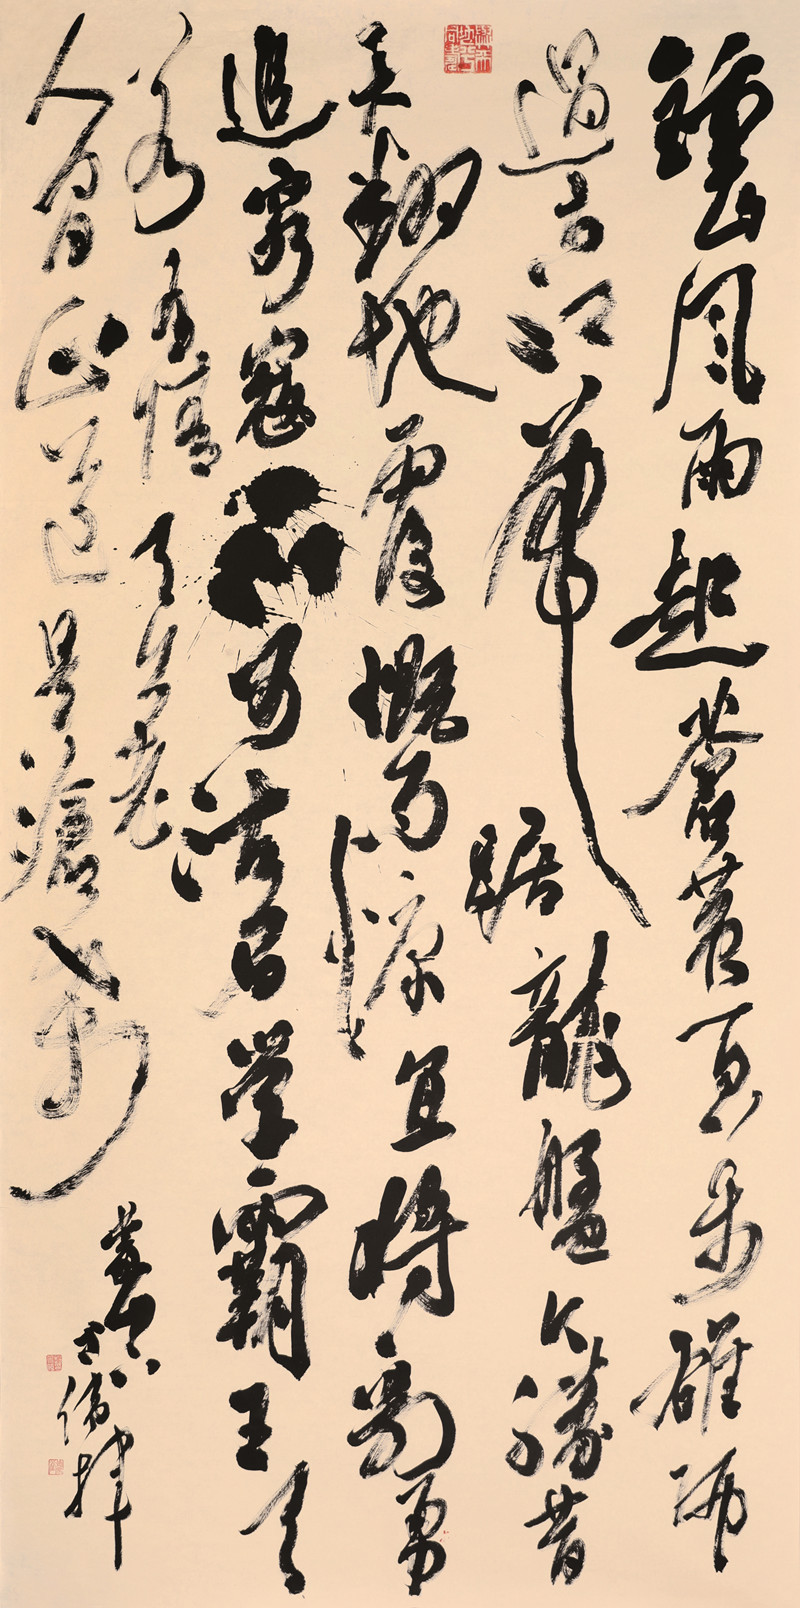 鍾山风雨起蒼黄百万雄师
過大江虎踞龍盤今勝昔
天翻地覆慨而慷宜將剩勇
追穷寇不可沽名学霸王天
若有情天亦老
人间正道是滄桑